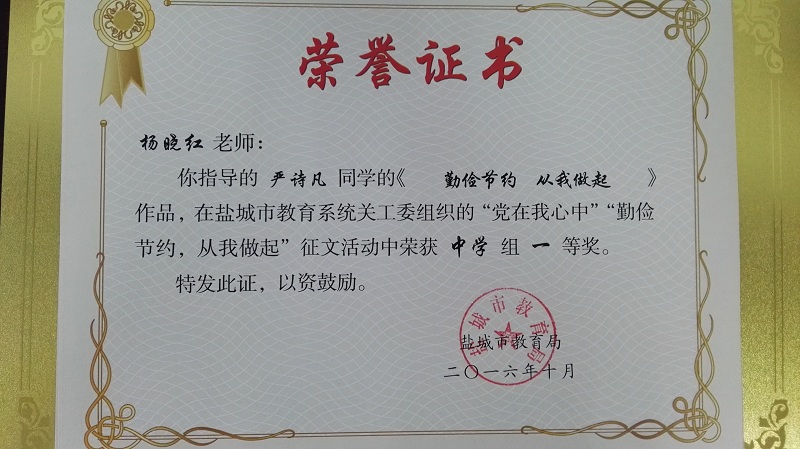 荣誉证书
杨晓红 老师：
你指导的 严诗凡 同学的《 勤俭节约 从我做起 》
作品，在盐城市教育系统关工委组织的“党在我心中”“勤俭
节约，从我做起”征文活动中荣获 中学 组 一 等奖。
特发此证，以资鼓励。
盐城市教育局
盐城市教育局
二〇一六年十月